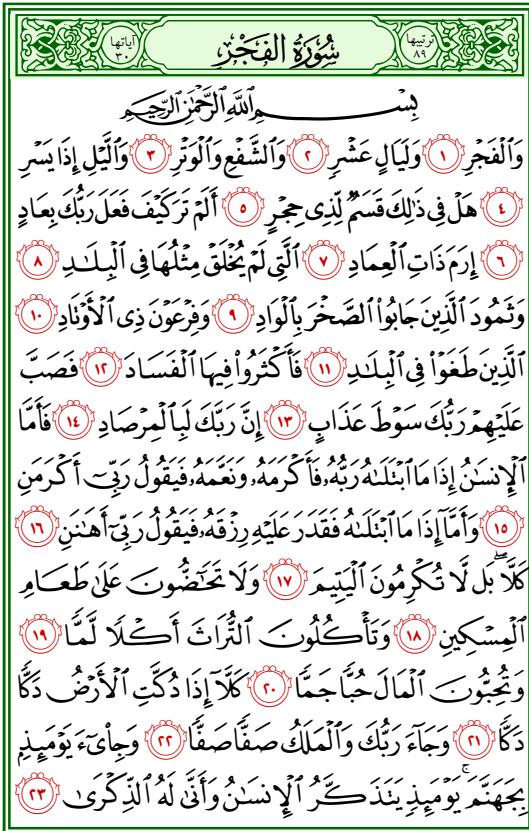 ترتيبها ٨٩ سُورَةُ الفَجْرِ آياتها ٣٠
بِسْمِ اللَّهِ الرَّحْمَٰنِ الرَّحِيمِ
وَٱلْفَجْرِ ١ وَلَيَالٍ عَشْرٍ ٢ وَٱلشَّفْعِ وَٱلْوَتْرِ ٣ وَٱلَّيْلِ إِذَا يَسْرِ
٤ هَلْ فِى ذَٰلِكَ قَسَمٌ لِّذِى حِجْرٍ ٥ أَلَمْ تَرَ كَيْفَ فَعَلَ رَبُّكَ بِعَادٍ
٦ إِرَمَ ذَاتِ ٱلْعِمَادِ ٧ ٱلَّتِى لَمْ يُخْلَقْ مِثْلُهَا فِى ٱلْبِلَـٰدِ ٨
وَثَمُودَ ٱلَّذِينَ جَابُوا۟ ٱلصَّخْرَ بِٱلْوَادِ ٩ وَفِرْعَوْنَ ذِى ٱلْأَوْتَادِ ١٠
ٱلَّذِينَ طَغَوْا۟ فِى ٱلْبِلَـٰدِ ١١ فَأَكْثَرُوا۟ فِيهَا ٱلْفَسَادَ ١٢ فَصَبَّ
عَلَيْهِمْ رَبُّكَ سَوْطَ عَذَابٍ ١٣ إِنَّ رَبَّكَ لَبِٱلْمِرْصَادِ ١٤ فَأَمَّا
ٱلْإِنسَـٰنُ إِذَا مَا ٱبْتَلَىٰهُ رَبُّهُۥ فَأَكْرَمَهُۥ وَنَعَّمَهُۥ فَيَقُولُ رَبِّىٓ أَكْرَمَنِ
١٥ وَأَمَّآ إِذَا مَا ٱبْتَلَىٰهُ فَقَدَرَ عَلَيْهِ رِزْقَهُۥ فَيَقُولُ رَبِّىٓ أَهَـٰنَنِ ١٦
كَلَّا ۖ بَل لَّا تُكْرِمُونَ ٱلْيَتِيمَ ١٧ وَلَا تَحَـٰٓضُّونَ عَلَىٰ طَعَامِ
ٱلْمِسْكِينِ ١٨ وَتَأْكُلُونَ ٱلتُّرَاثَ أَكْلًا لَّمًّا ١٩
وَتُحِبُّونَ ٱلْمَالَ حُبًّا جَمًّا ٢٠ كَلَّآ إِذَا دُكَّتِ ٱلْأَرْضُ دَكًّا
دَكًّا ٢١ وَجَآءَ رَبُّكَ وَٱلْمَلَكُ صَفًّا صَفًّا ٢٢ وَجِا۟ىٓءَ يَوْمَئِذٍۭ
بِجَهَنَّمَ ۚ يَوْمَئِذٍ يَتَذَكَّرُ ٱلْإِنسَـٰنُ وَأَنَّىٰ لَهُ ٱلذِّكْرَىٰ ٢٣